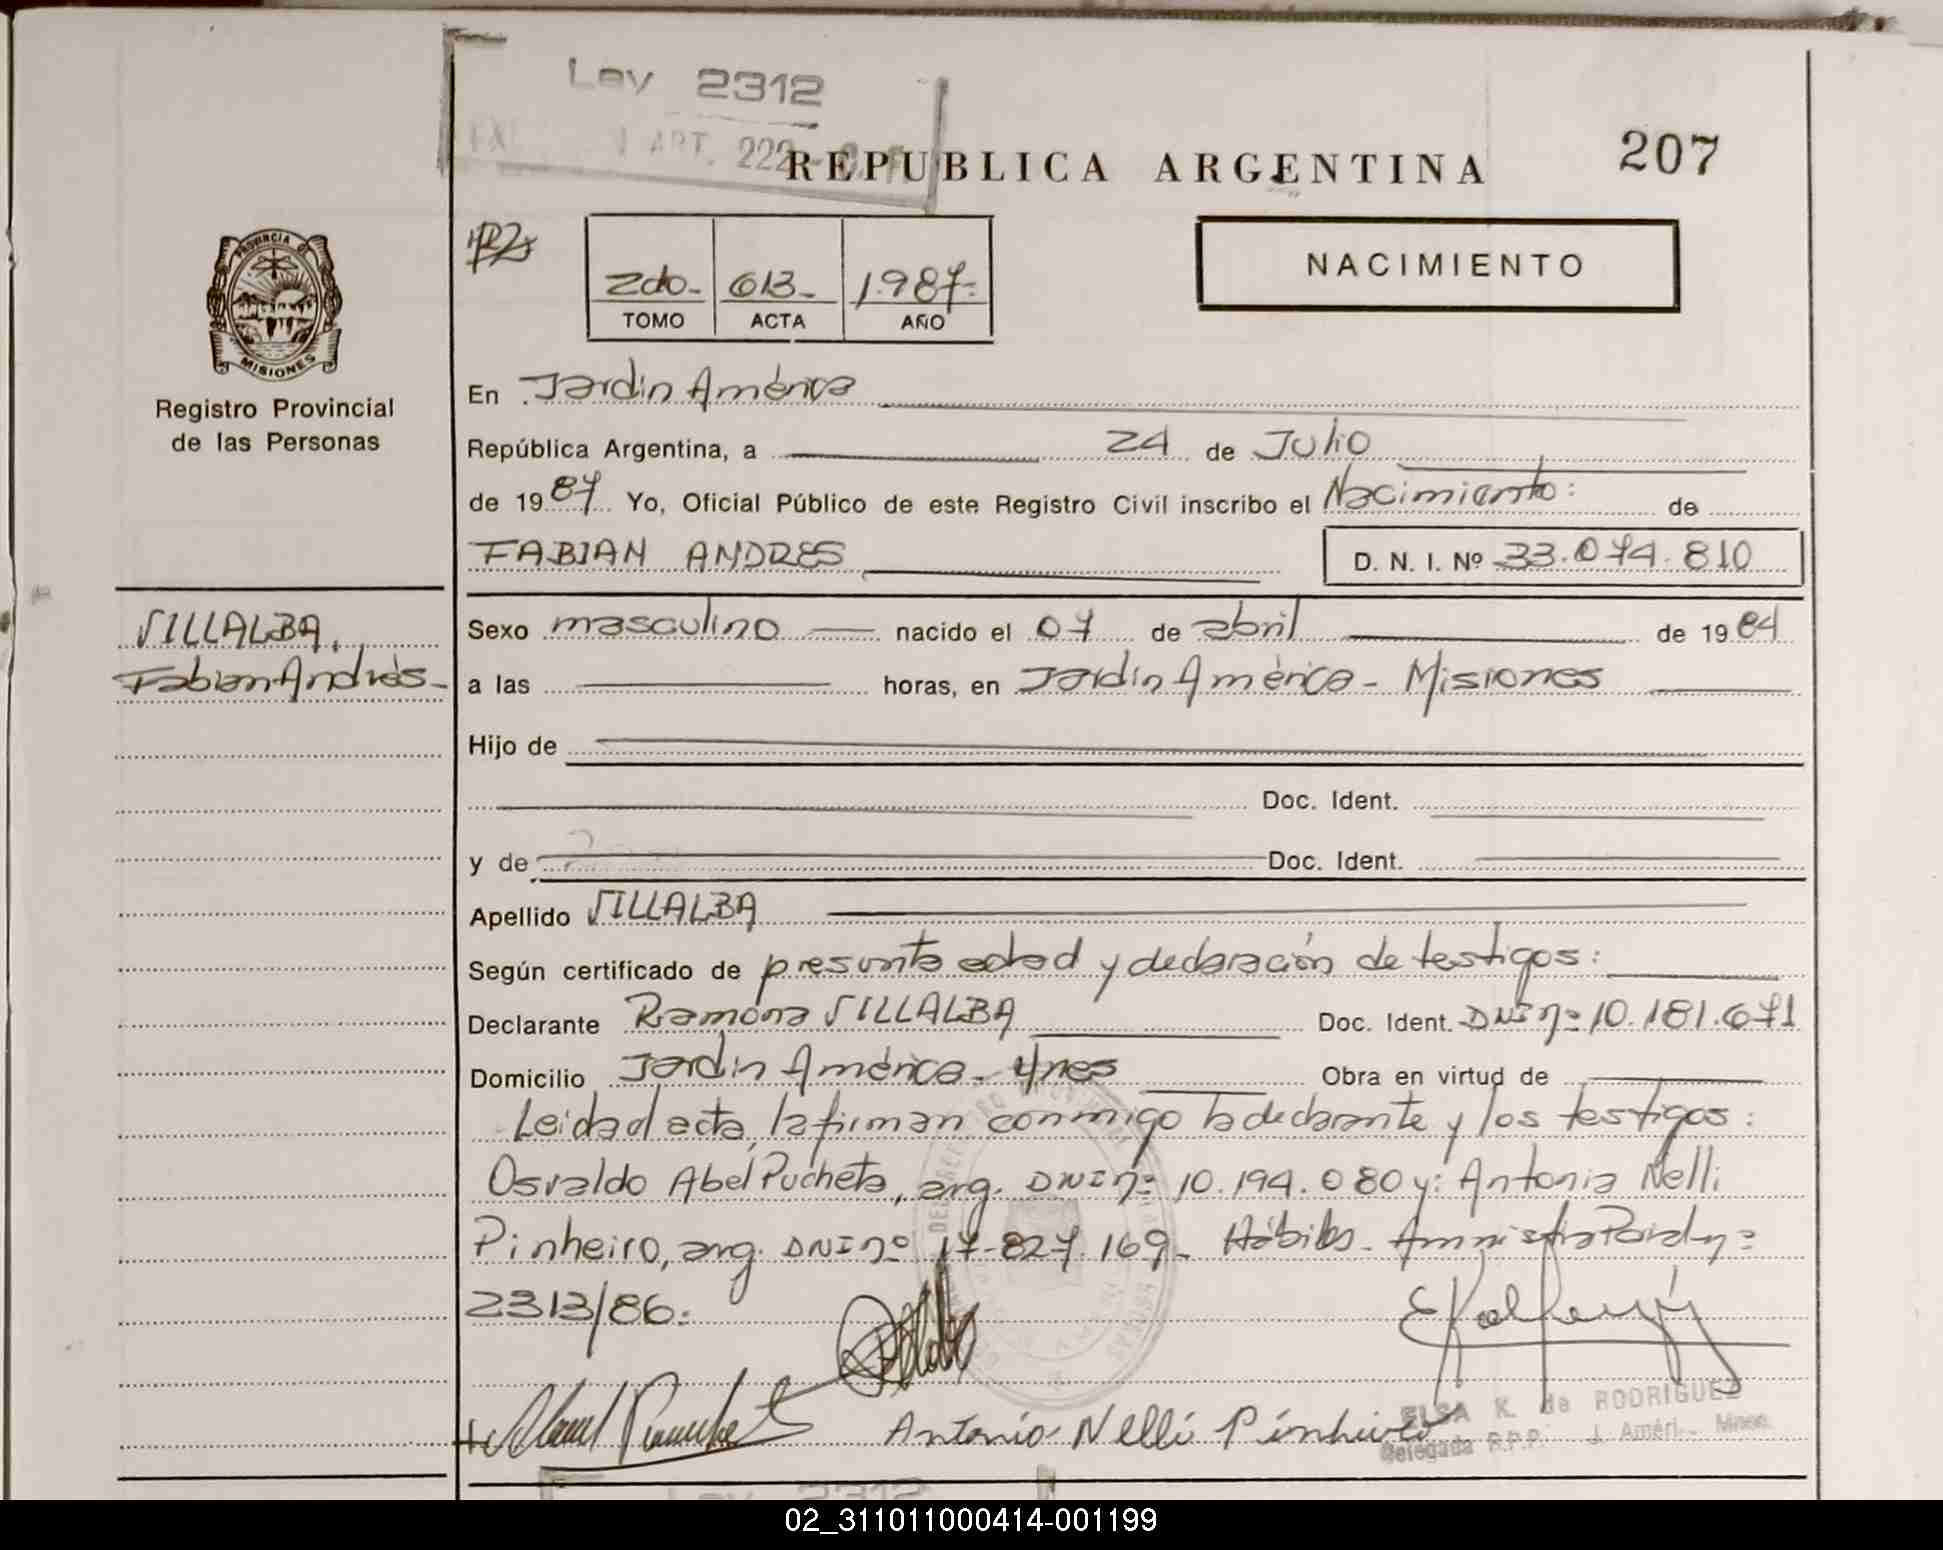 Ley 2312
ART. 222
REPUBLICA ARGENTINA
207
2do- 613- 1.987-
TOMO ACTA AÑO
NACIMIENTO
PROVINCIA DE
MISIONES
Registro Provincial
de las Personas
En Jardín América
República Argentina, a 24 de Julio
de 1987 Yo, Oficial Público de este Registro Civil inscribo el Nacimiento: de
FABIAN ANDRES D. N. I. Nº 33.074.810
VILLALBA,
Fabian Andrés-
Sexo masculino nacido el 07 de abril de 1984
a las horas, en Jardín América - Misiones
Hijo de
Doc. Ident.
y de Doc. Ident.
Apellido VILLALBA
Según certificado de presunta edad y declaración de testigos:
Declarante Ramona VILLALBA Doc. Ident. DNI nº 10.181.671
Domicilio Jardín América - Mnes Obra en virtud de
Leida el acta, la firman conmigo la declarante y los testigos:
Osvaldo Abel Pucheta, arg. DNI nº 10.194.080 y: Antonia Nelli
Pinheiro, arg. DNI nº 17.827.169- Hábiles-
2313/86.
Antonia Nelli Pinheiro
ELSA K. de RODRIGUEZ
Delegada R.P.P. J. Améri.- Mnes.
Ley 2312
02_311011000414-001199